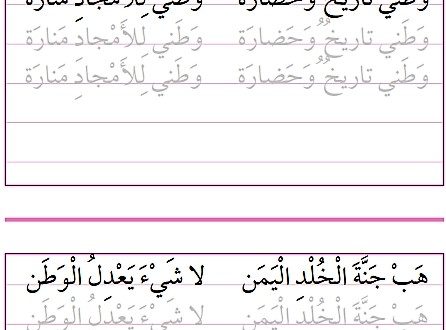 وَطَني تاريخٌ وَحَضارَة وَطَني لِلأَمْجادِ مَنارَة
وَطَني تاريخٌ وَحَضارَة وَطَني لِلأَمْجادِ مَنارَة
وَطَني تاريخٌ وَحَضارَة وَطَني لِلأَمْجادِ مَنارَة
هَبْ جَنَّةَ الْخُلْدِ الْيَمَن لا شَيْءَ يَعْدِلُ الْوَطَن
هَبْ جَنَّةَ الْخُلْدِ الْيَمَن لا شَيْءَ يَعْدِلُ الْوَطَن